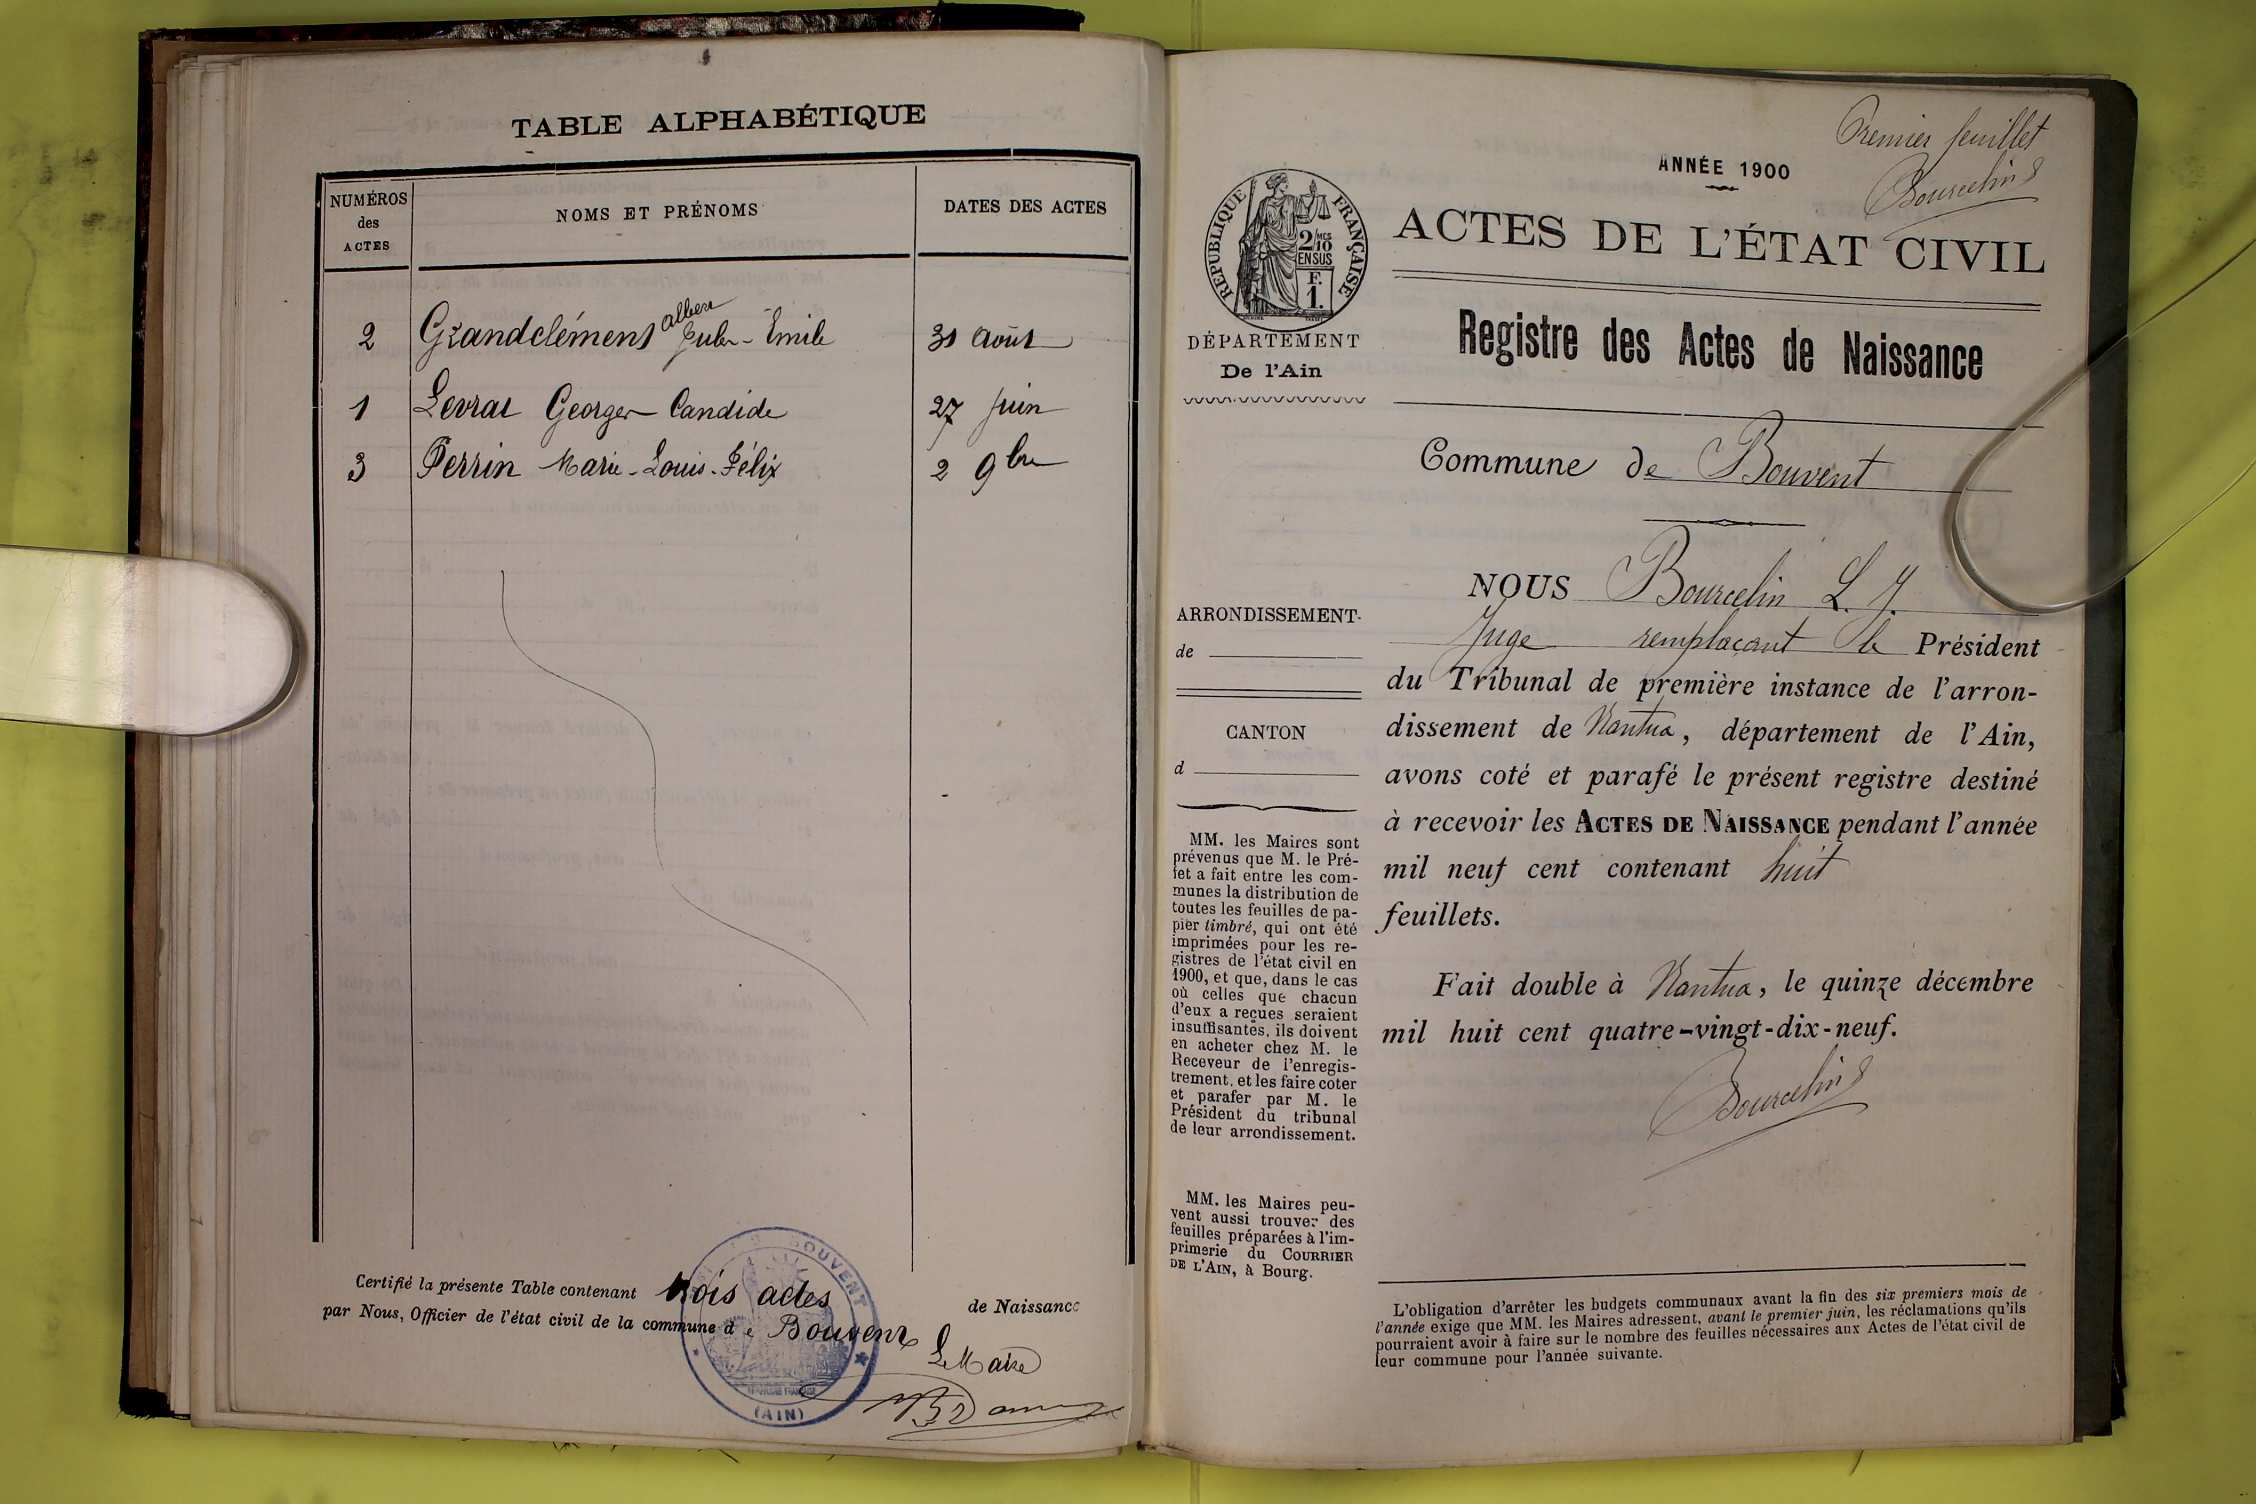 TABLE ALPHABÉTIQUE
NUMÉROS
des
ACTES
NOMS ET PRÉNOMS
DATES DES ACTES
2 Grandclément Jules-Emile albert 31 Août
1 Levrat Georges Candide 27 juin
3 Perrin Marie-Louis-Félix 2 9bre
Certifié la présente Table contenant trois actes de Naissance
par Nous, Officier de l'état civil de la commune de Bouvent
Le Maire
BOUVENT
(AIN)
Premier feuillet
Bourcelin
ANNÉE 1900
ACTES DE L'ÉTAT CIVIL
RÉPUBLIQUE FRANÇAISE
2/10
MES
EN SUS
F.
1.
DÉPARTEMENT
De l'Ain
Registre des Actes de Naissance
Commune de Bouvent
ARRONDISSEMENT
de
CANTON
d
MM. les Maires sont
prévenus que M. le Pré-
fet a fait entre les com-
munes la distribution de
toutes les feuilles de pa-
pier timbré, qui ont été
imprimées pour les re-
gistres de l'état civil en
1900, et que, dans le cas
où celles que chacun
d'eux a reçues seraient
insuffisantes, ils doivent
en acheter chez M. le
Receveur de l'enregis-
trement, et les faire coter
et parafer par M. le
Président du tribunal
de leur arrondissement.
MM. les Maires peu-
vent aussi trouver des
feuilles préparées à l'im-
primerie du COURRIER
DE L'AIN, à Bourg.
NOUS Bourcelin L. J.
Juge remplaçant le Président
du Tribunal de première instance de l'arron-
dissement de Nantua, département de l'Ain,
avons coté et parafé le présent registre destiné
à recevoir les ACTES DE NAISSANCE pendant l'année
mil neuf cent contenant huit
feuillets.
Fait double à Nantua, le quinze décembre
mil huit cent quatre-vingt-dix-neuf.
Bourcelin
L'obligation d'arrêter les budgets communaux avant la fin des six premiers mois de
l'année exige que MM. les Maires adressent, avant le premier juin, les réclamations qu'ils
pourraient avoir à faire sur le nombre des feuilles nécessaires aux Actes de l'état civil de
leur commune pour l'année suivante.